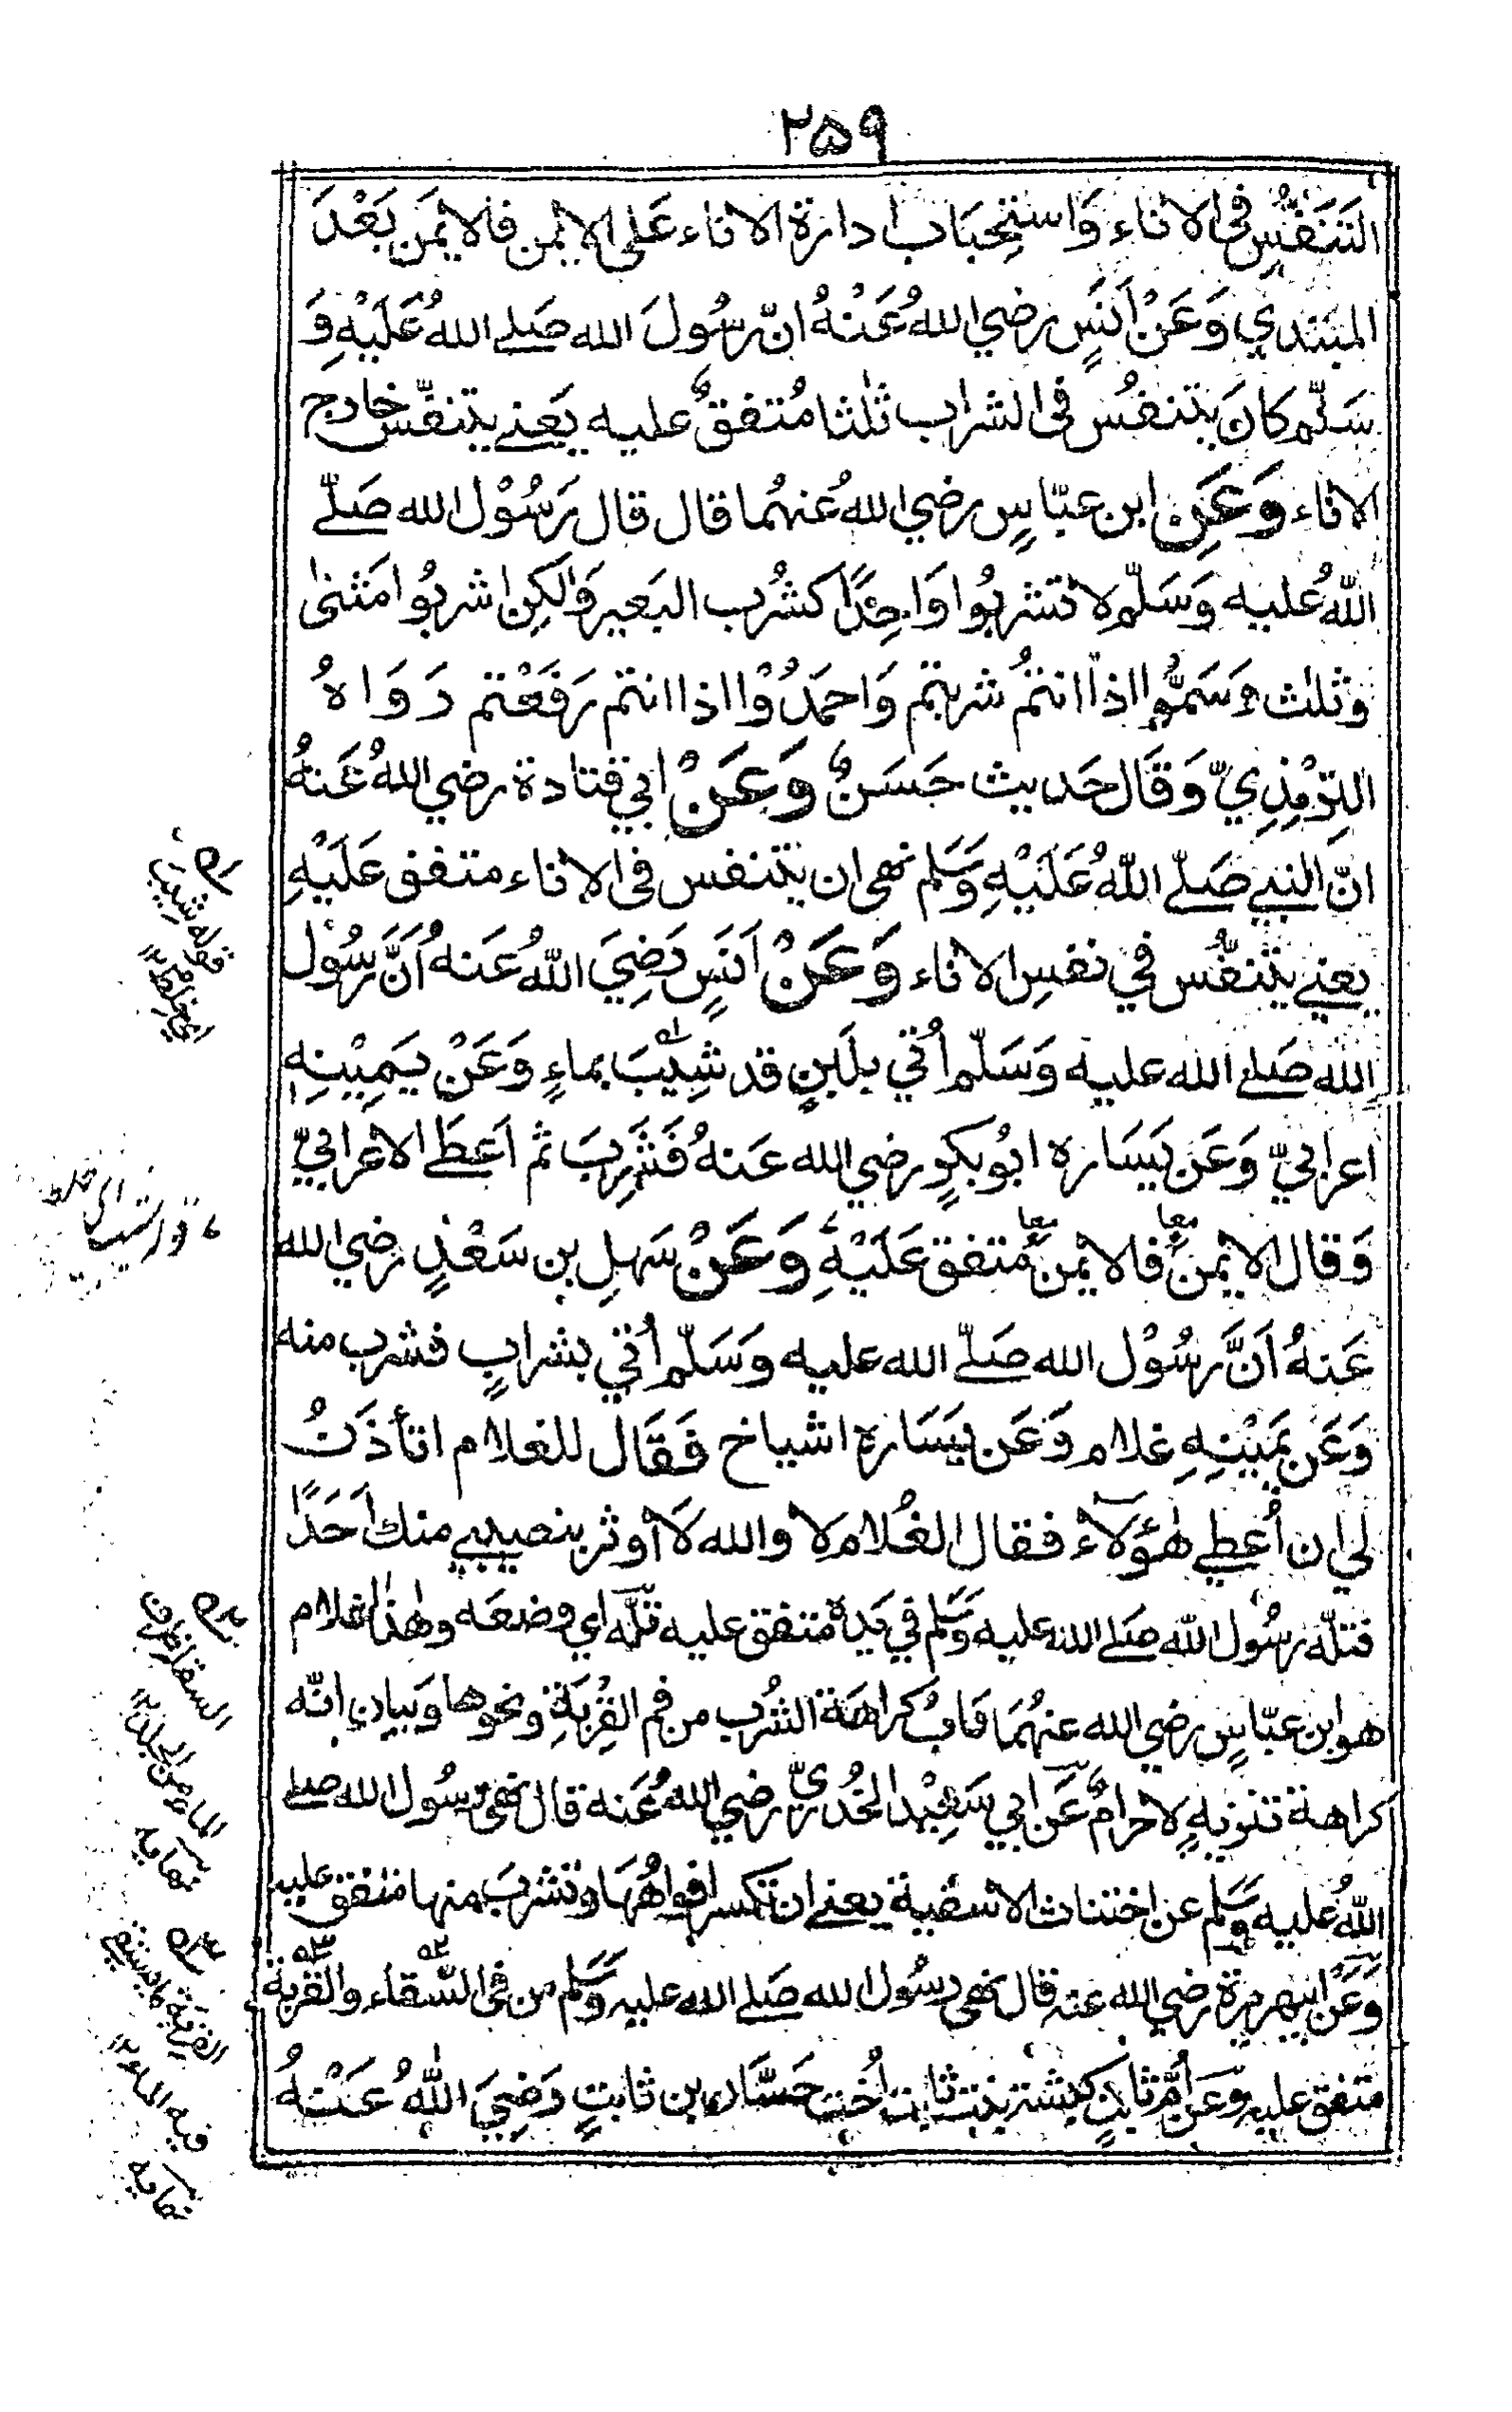 ٢٥٩
التَنَفُّسِ فى الاناء وَاستِحْبَاب ادارة الاناء عَلى الايمن فالايمَن بَعْدَ
المبتدي وَعَنْ اَنَسٍ رضي اللهُ عَنْهُ انّ رسُولَ الله صَلے اللهُ عَلَيْهِ وَ
سَلّم كانَ يتنفسُ فى الشراب ثلٰثا مُتفقٌ عليه يَعنے يتنفّس خارج
الاناء وَعَنِ ابن عبّاسٍ رضي اللهُ عنهُما قال قال رَسُوْل الله صَلّے
اللّٰهُ عليه وَسَلّم لا تشربُوا وَاحِدًا كشُرب البَعير وَلٰكِن اشربُوا مَثنىٰ
وثلٰث وَسَمُّوا اذا انتمُ شربتم وَاحمَدُوْا اذا انتم رَفَعْتم رَوَاهُ
التِرْمِذِيّ وَقَال حَديث حَسَنٌ وَعَنْ ابي قتادة رضي اللهُ عَنهُ
انّ النبيے صَلّے اللّٰهُ عَلَيْهِ وَسَلم نهى ان يتنفس فى الاناء متفق عَلَيْهِ
يعنے يتنفّس في نفسِ الاناء وَعَنْ اَنَسٍ رَضِيَ اللّٰهُ عَنهُ اَنَّ رَسُوْل
الله صَلے الله عليه وَسَلّم اُتي بلَبَنٍ قد شِيْبَ بماءٍ وَعَنْ يَمِيْنِهٖ
اعرابيّ وَعَن يَسَاره ابُو بَكرٍ رضي الله عَنهُ فَشَرِبَ ثم اَعطَے الاعرابيّ
وَقال الايمن فالايمن متفق عَلَيْهِ وَعَنْ سَهلِ بن سَعْدٍ رضي الله
عَنهُ اَنَّ رسُوْل الله صَلّے الله عليه وَسَلّم اُتي بشرابٍ فشرب منه
وَعَن يَمِيْنِهٖ غلام وَعَن يَسَارهٖ اشياخ فَقَال للغلام اتأذَنُ
لي ان اُعطي هٰؤلاء فقال الغُلام لا والله لَا اُوثر بنصيبي منك اَحَدًا
فتلّه رسُول الله صَلے الله عليه وَسَلم في يَده متفق عليه تَلّه اي وضعَه وهٰذا الغلام
هو ابن عبّاسٍ رضي الله عنهُمَا بَابُ كراهَة الشُرب من فم القِرْبَة ونحوها وَبيان انّه
كراهة تنزيهٍ لا حرامٌ عَن ابي سَعِيْد الخُدريّ رضي اللهُ عَنه قال نهى رسُول الله صلے
اللّٰهُ عليه وَسَلم عن اختناث الاسْقية يعنے ان تكسر افواهُهَا وتشربَ منها متفق عليه
وَعَنْ ابي هريرة رضي الله عنه قال نهى رسُول الله صَلے الله عليه وَسَلم من فى السّقاء والقِرْبة
متفق عليه وَعَن اُمّ ثابتٍ كبشة بنت ثابت اُخت حَسَّان بن ثابتٍ رَضِيَ اللّٰهُ عَنْهُ